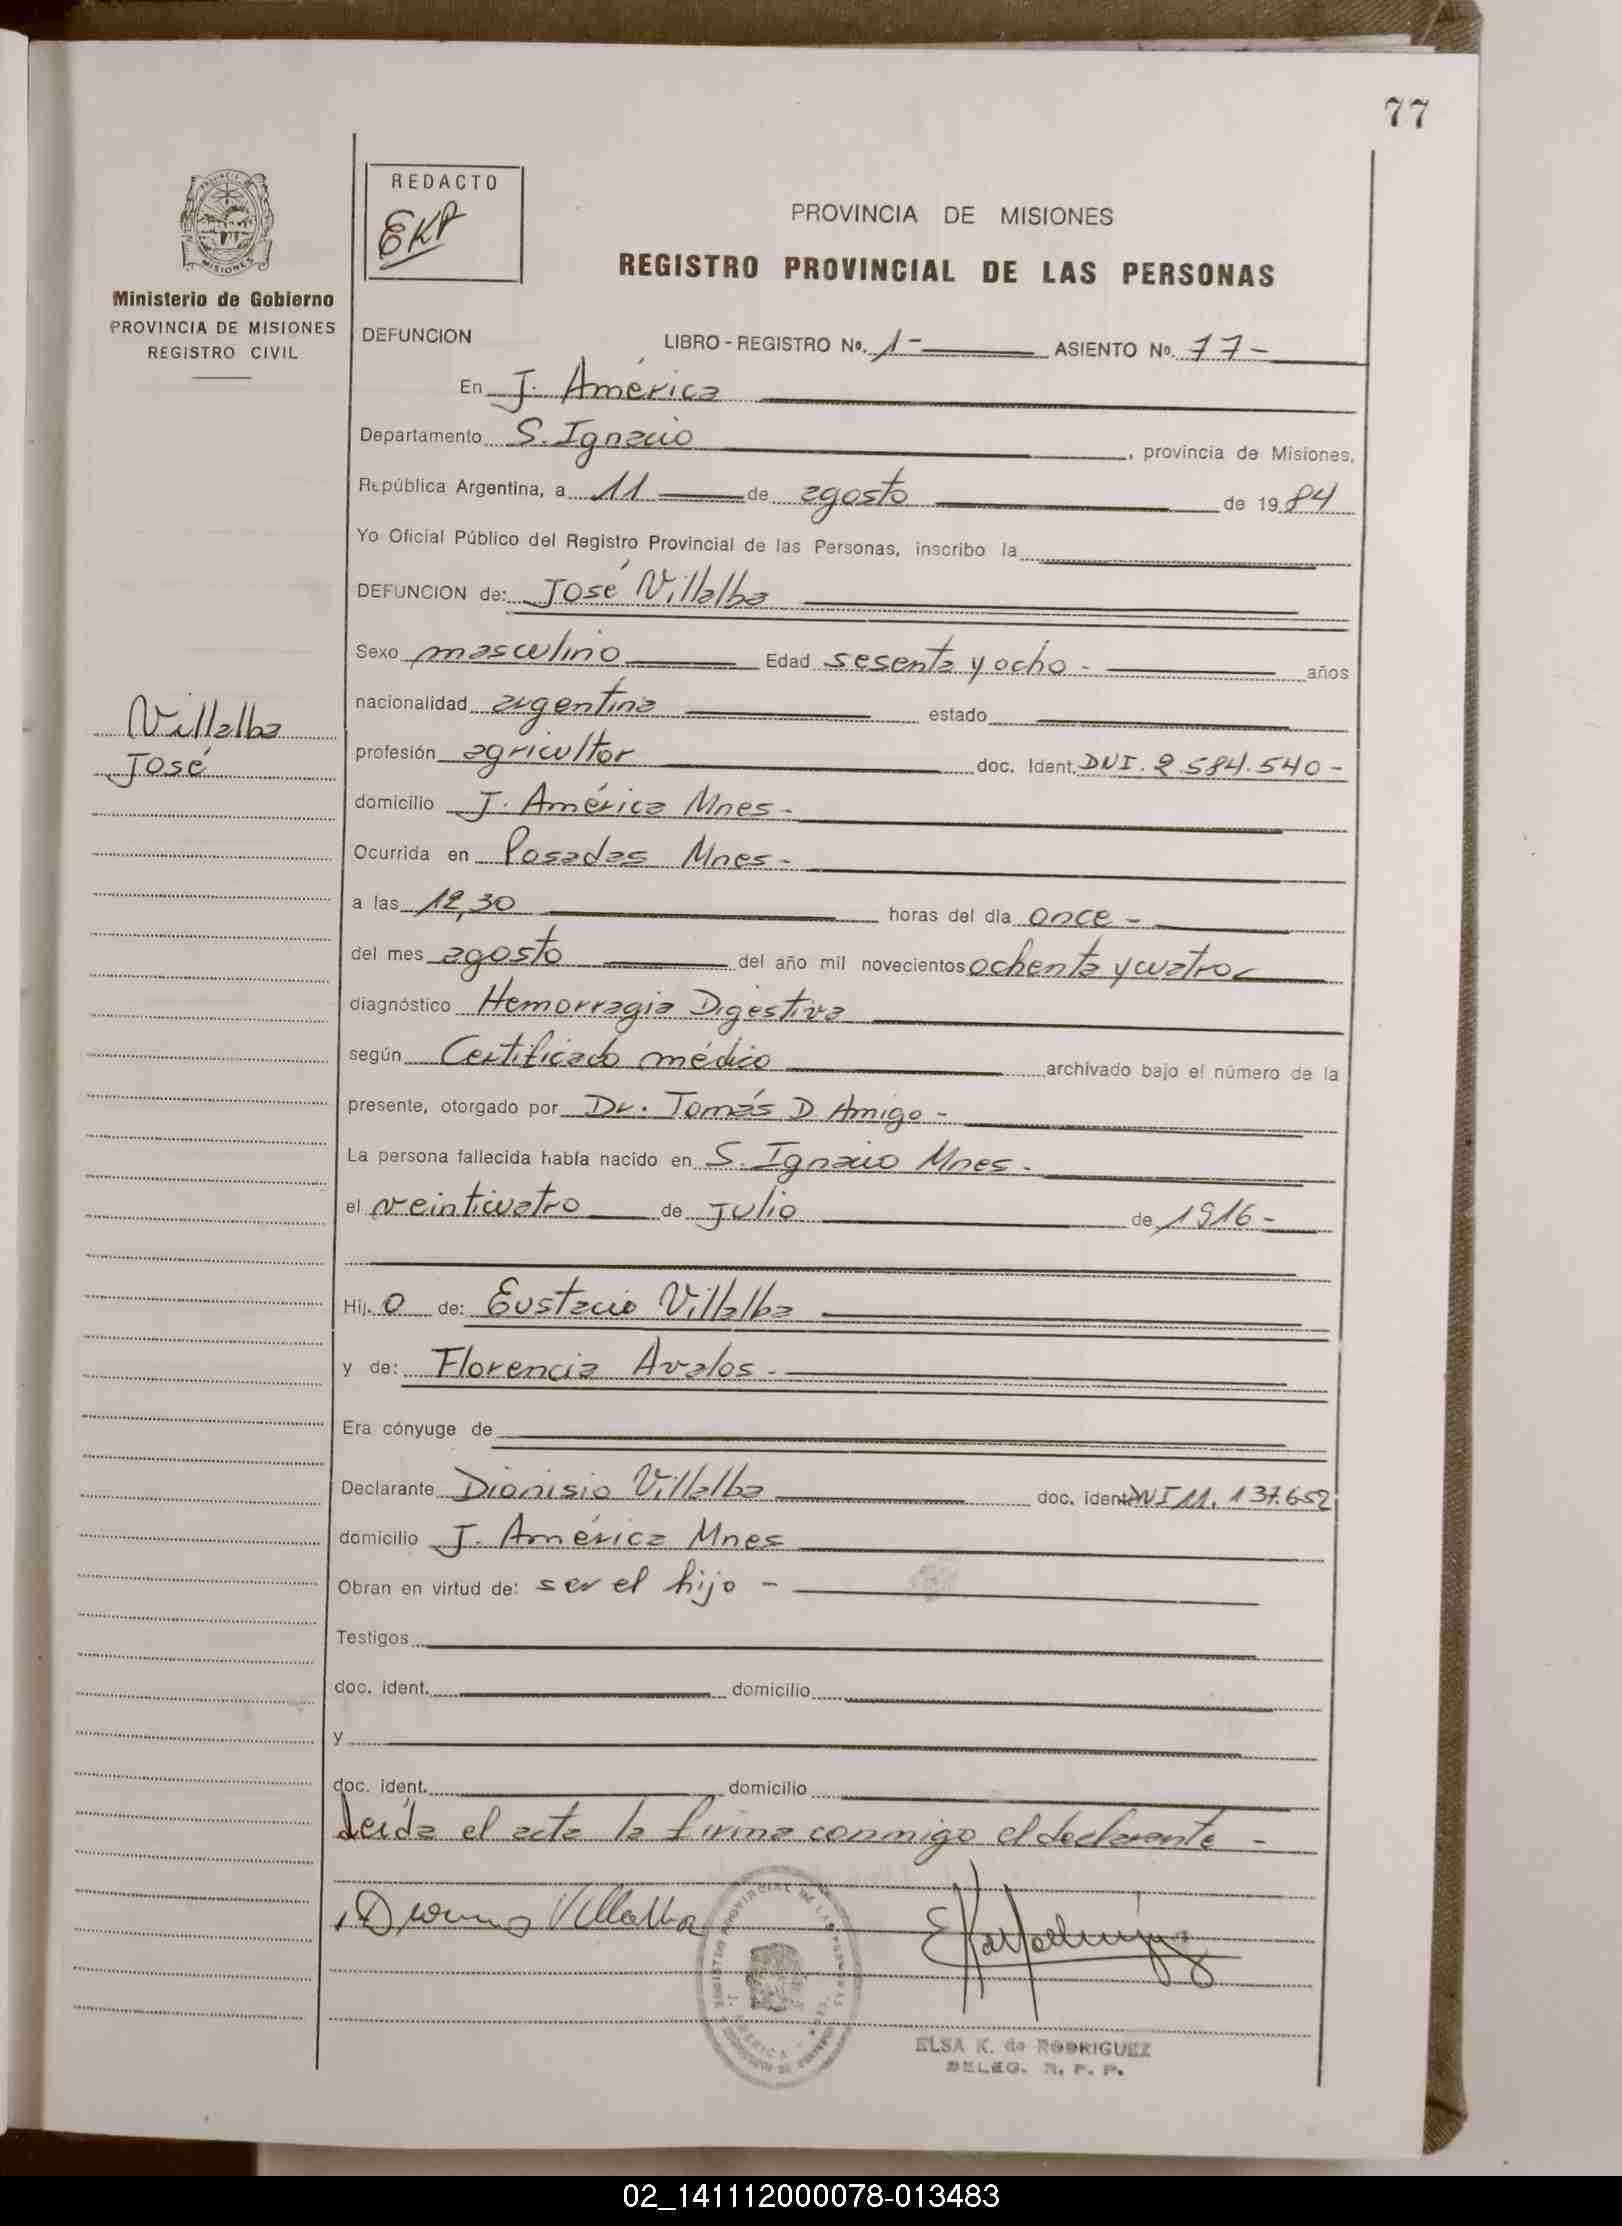 77
REDACTO
EKR
PROVINCIA DE MISIONES
REGISTRO PROVINCIAL DE LAS PERSONAS
MISIONES
Ministerio de Gobierno
PROVINCIA DE MISIONES
REGISTRO CIVIL
DEFUNCION LIBRO - REGISTRO Nº. 1 - ASIENTO Nº. 77 -
En J. América
Departamento S. Ignacio, provincia de Misiones,
República Argentina, a 11 de agosto de 1984
Yo Oficial Público del Registro Provincial de las Personas, inscribo la
DEFUNCION de: José Villalba
Sexo masculino Edad sesenta y ocho - años
Villalba
José
nacionalidad argentina estado
profesión agricultor doc. Ident. DNI. 2.584.540 -
domicilio J. América Mnes -
Ocurrida en Posadas Mnes -
a las 12,30 horas del día once -
del mes agosto del año mil novecientos ochenta y cuatro
diagnóstico Hemorragia Digestiva
según Certificado médico archivado bajo el número de la
presente, otorgado por Dr. Tomás D. Amigo -
La persona fallecida había nacido en S. Ignacio Mnes -
el veinticuatro de julio de 1916 -
Hij. o de: Eustacio Villalba
y de: Florencia Avalos -
Era cónyuge de
Declarante Dionisio Villalba doc. ident. DNI 11.137.652
domicilio J. América Mnes
Obran en virtud de: ser el hijo -
Testigos
doc. ident. domicilio
y
doc. ident. domicilio
Leída el acta la firma conmigo el declarante -
Villalba
ELSA K. de RODRIGUEZ
DELEG. R. P. P.
02_141112000078-013483